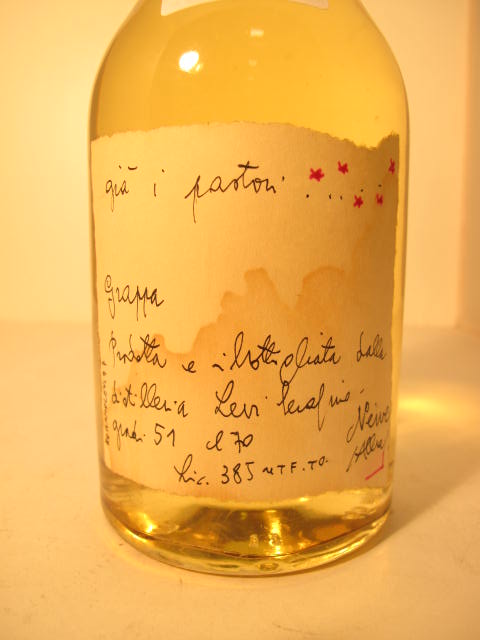 già i pastori .....
Grappa
Prodotta e imbottigliata dalla
distilleria Levi Serafino
Neive
gradi 51 cl 70
(Alba)
Lic. 385 UTF. TO.